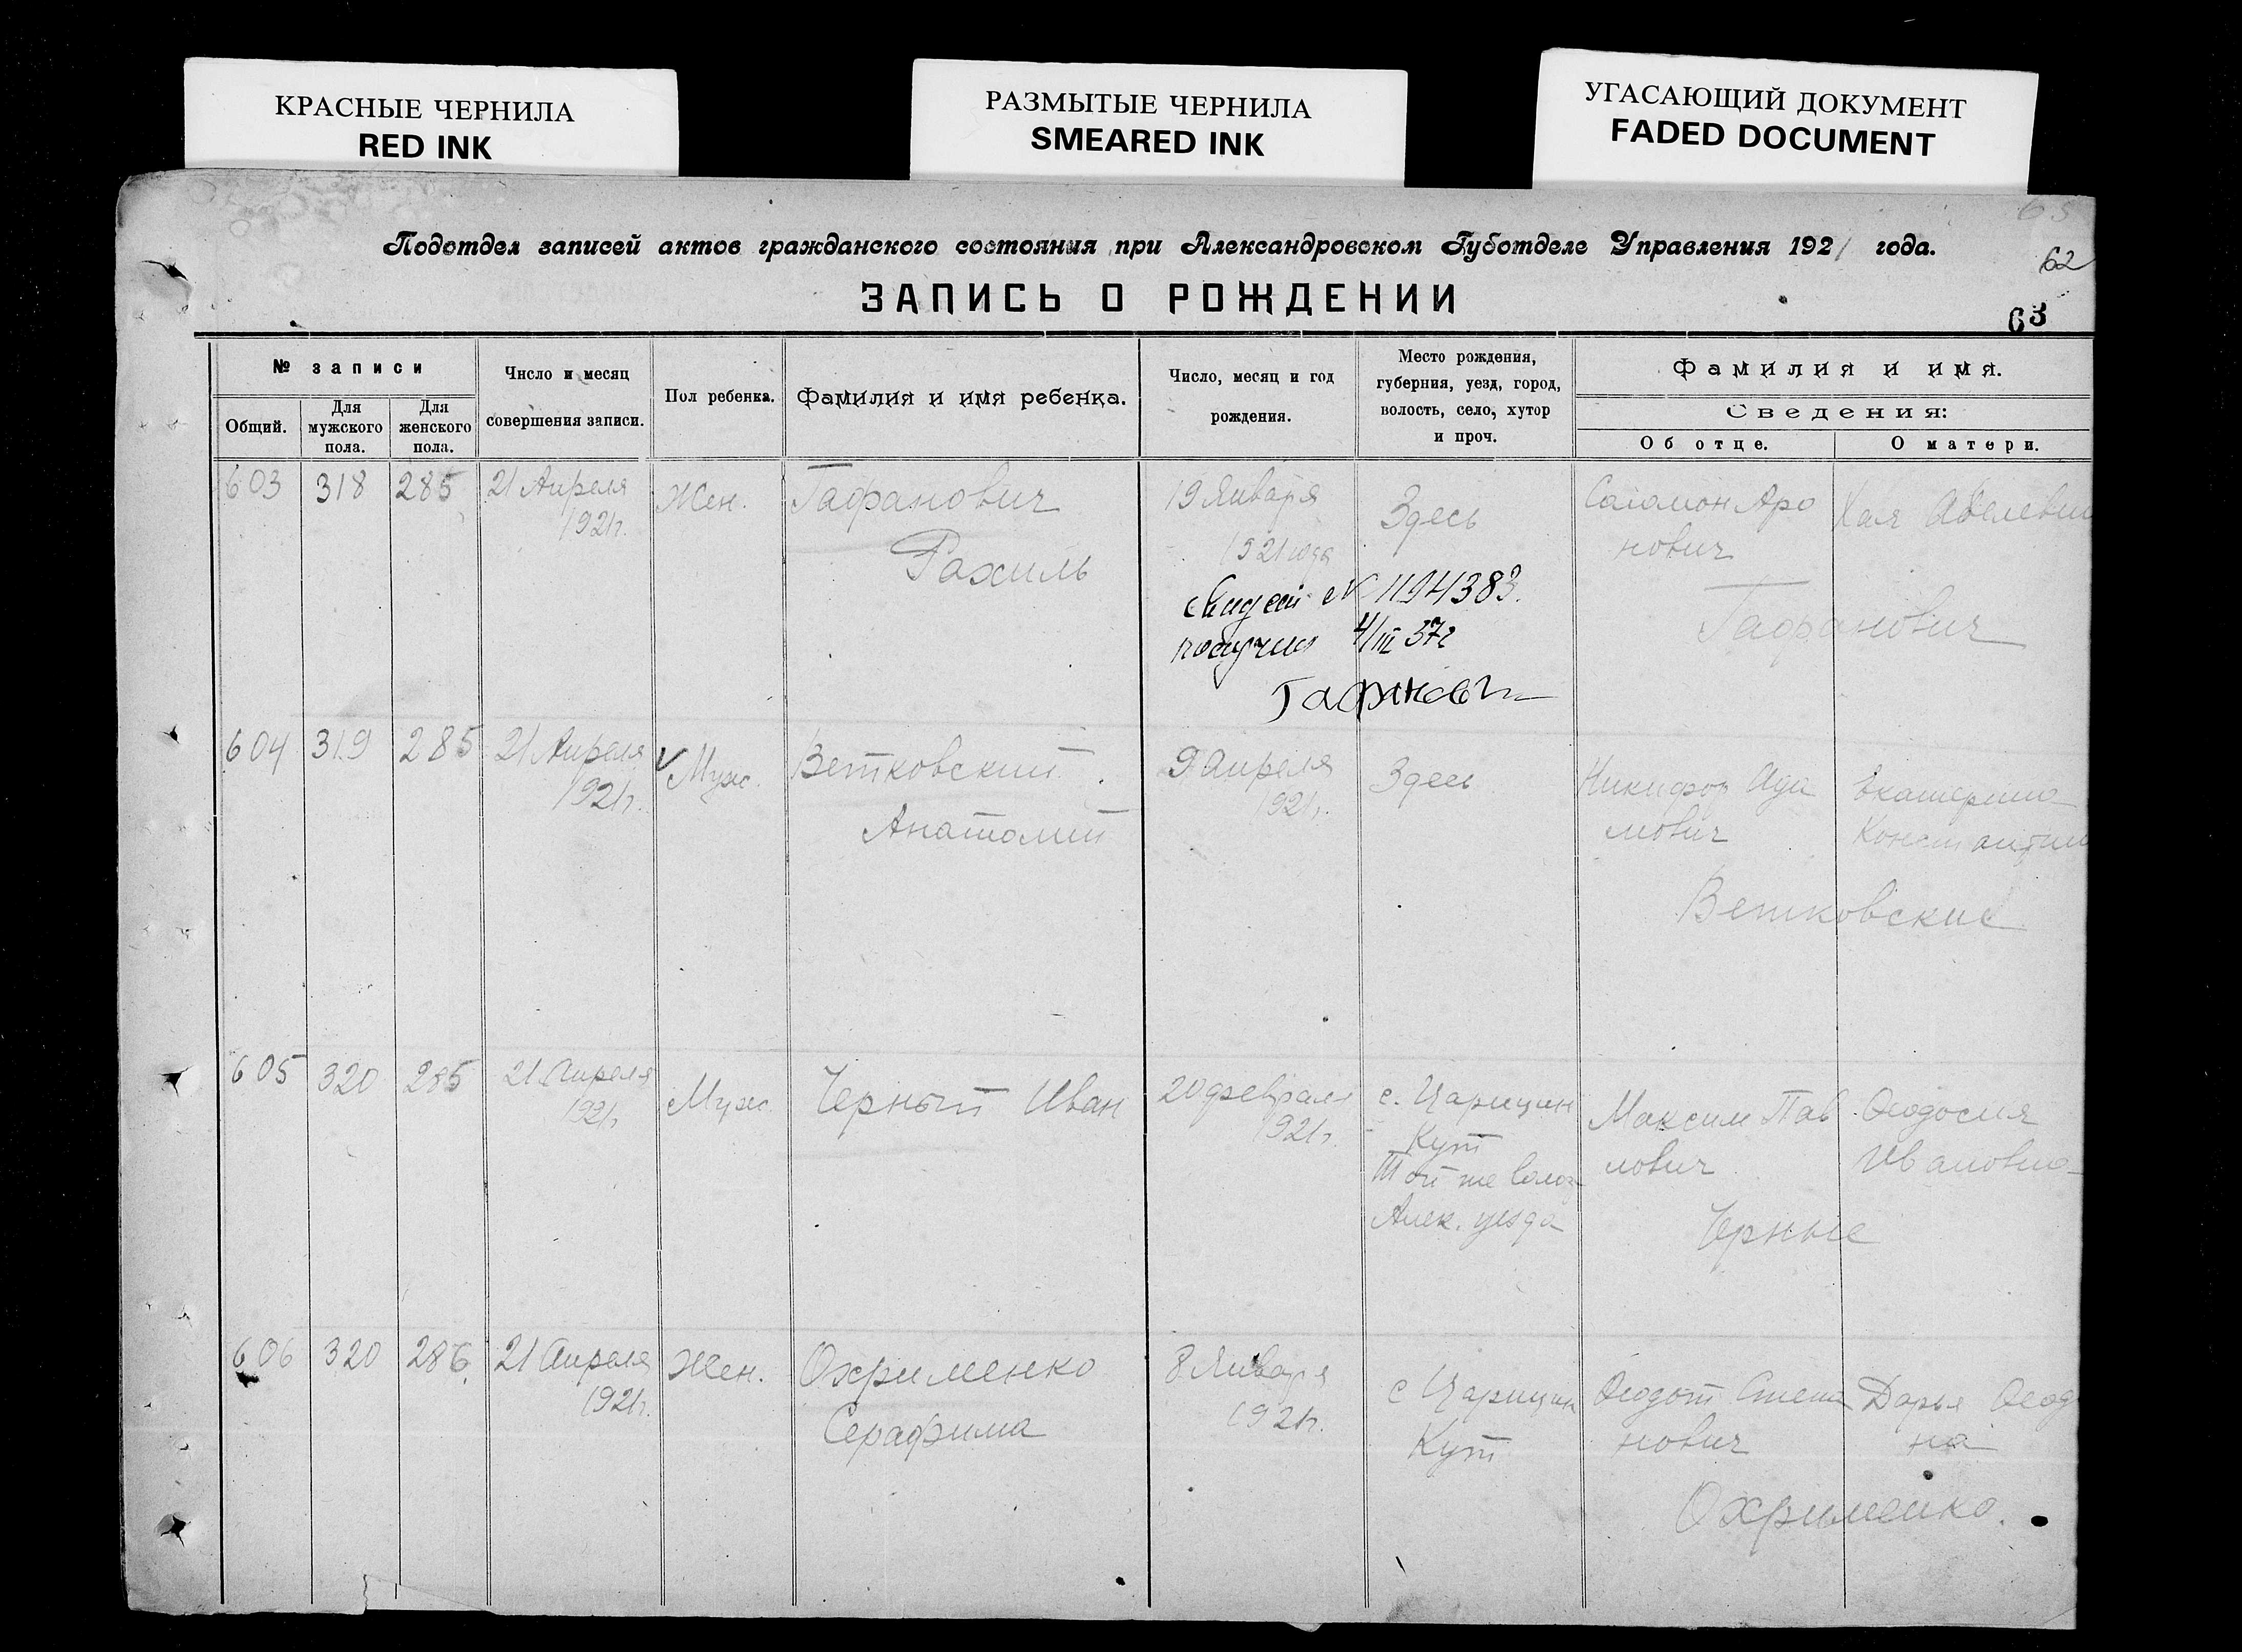 КРАСНЫЕ ЧЕРНИЛА
RED INK
РАЗМЫТЫЕ ЧЕРНИЛА
SMEARED INK
УГАСАЮЩИЙ ДОКУМЕНТ
FADED DOCUMENT
Подотдел записей актов гражданского состояния при Александровском Губотделе Управления 1921 года.
62
ЗАПИСЬ О РОЖДЕНИИ
63
№ записи
Общий.
Для мужского пола.
Для женского пола.
Число и месяц
совершения записи.
Пол ребенка.
Фамилия и имя ребенка.
Число, месяц и год
рождения.
Место рождения,
губерния, уезд, город,
волость, село, хутор
и проч.
Фамилия и имя.
Сведения:
Об отце.
О матери.
603 318 285 21 Апреля
1921г.
Жен.
Гафанович
Рахиль
19 Января
1921 года
Здесь
Саломон Аро
нович
Хая
Гафанович
№ 1194383.
получил 4/III 37г
Гафанович
604 319 285 21 Апреля
1921г.
Муж.
Ветковский
Анатолий
9 Апреля
1921г.
Здесь
Никифор Ада
мович
Екатерина
Константин
Ветковские
605 320 285 21 Апреля
1921г.
Муж.
Черный Иван
20 февраля
1921г.
с. Царицын
Кут
Той же волос
Алек. уезда
Максим Пав
лович
Феодосия
Ивановна
Черные
606 320 286 21 Апреля
1921г.
Жен.
Охрименко
Серафима
8 Января
1921г.
с Царицын
Кут
Феодот Степа
нович
Дарья Феод
на
Охрименко.